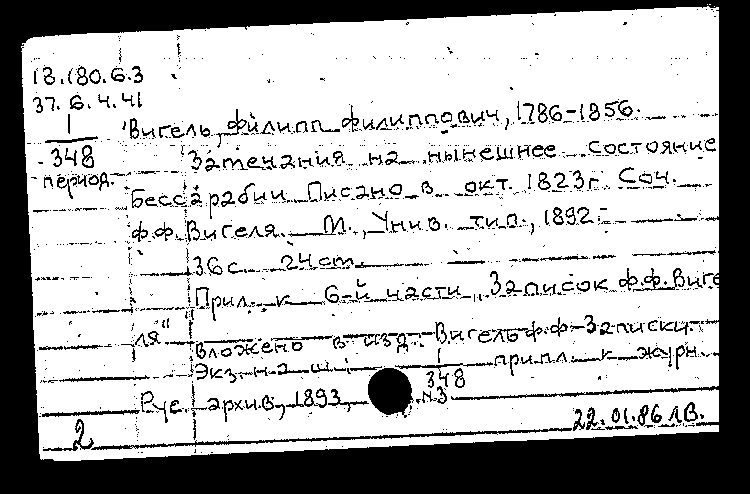 18.180.6.3
37.6.4.41
1
348
период.
Вигель, Филипп Филиппович, 1786-1856.
Замечания на нынешнее состояние
Бессарабии Писано в окт. 1823г. Соч.
Ф.Ф. Вигеля. М., Унив. тип., 1892.-
36с. 24cm.
Прил. к 6-й части „Записок Ф.Ф. Виге
ля"
Вложено в изд. Вигель Ф.Ф. Записки.
Экз. на ш. 1/348 приpl. к журн.
Рус. архив, 1893, N3
2
22.01.86 ЛВ.